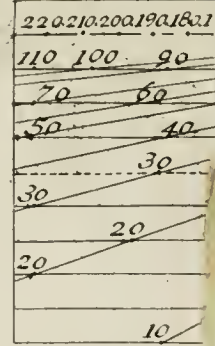 220.210.200.190.180.1
110 100 90
70 60
50 40
30
30
20
20
10